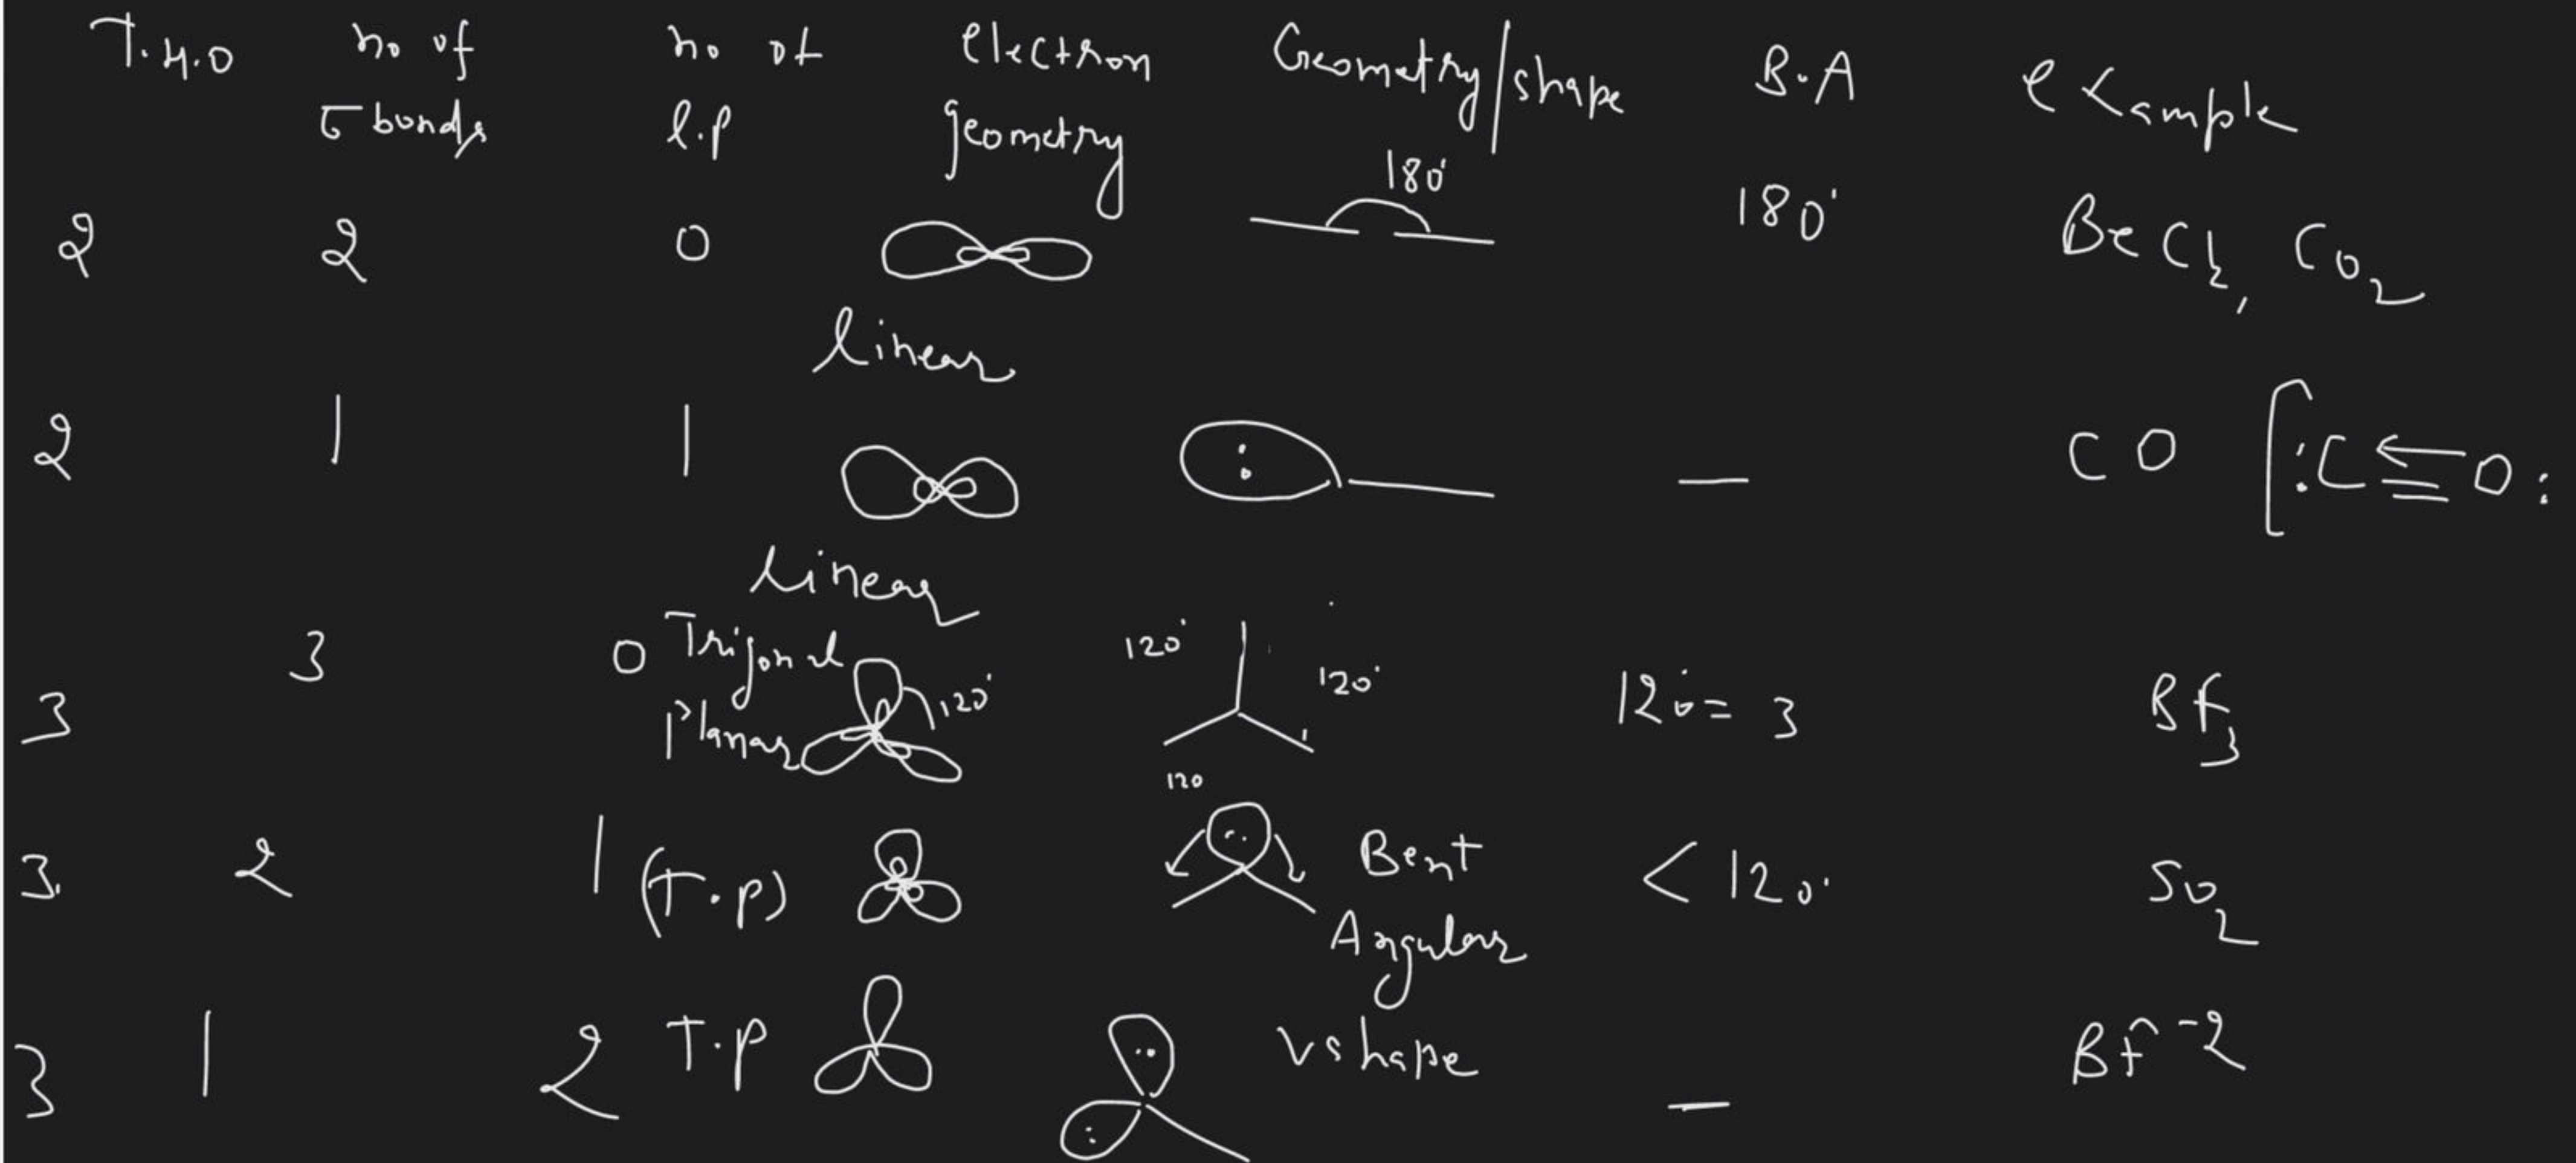 T.H.O no of σ bonds no of l.p electron geometry Geometry/shape B.A example
2 2 0 linear 180° 180° BeCl2, CO2
2 1 1 linear : — CO [:C≡O:
3 3 0 Trigonal Planar 120° 120° 120° 120 120° = 3 BF3
3. 2 1 (T.P) .. Bent Angular < 120° SO2
3 1 2 T.P .. : V shape — BF-2